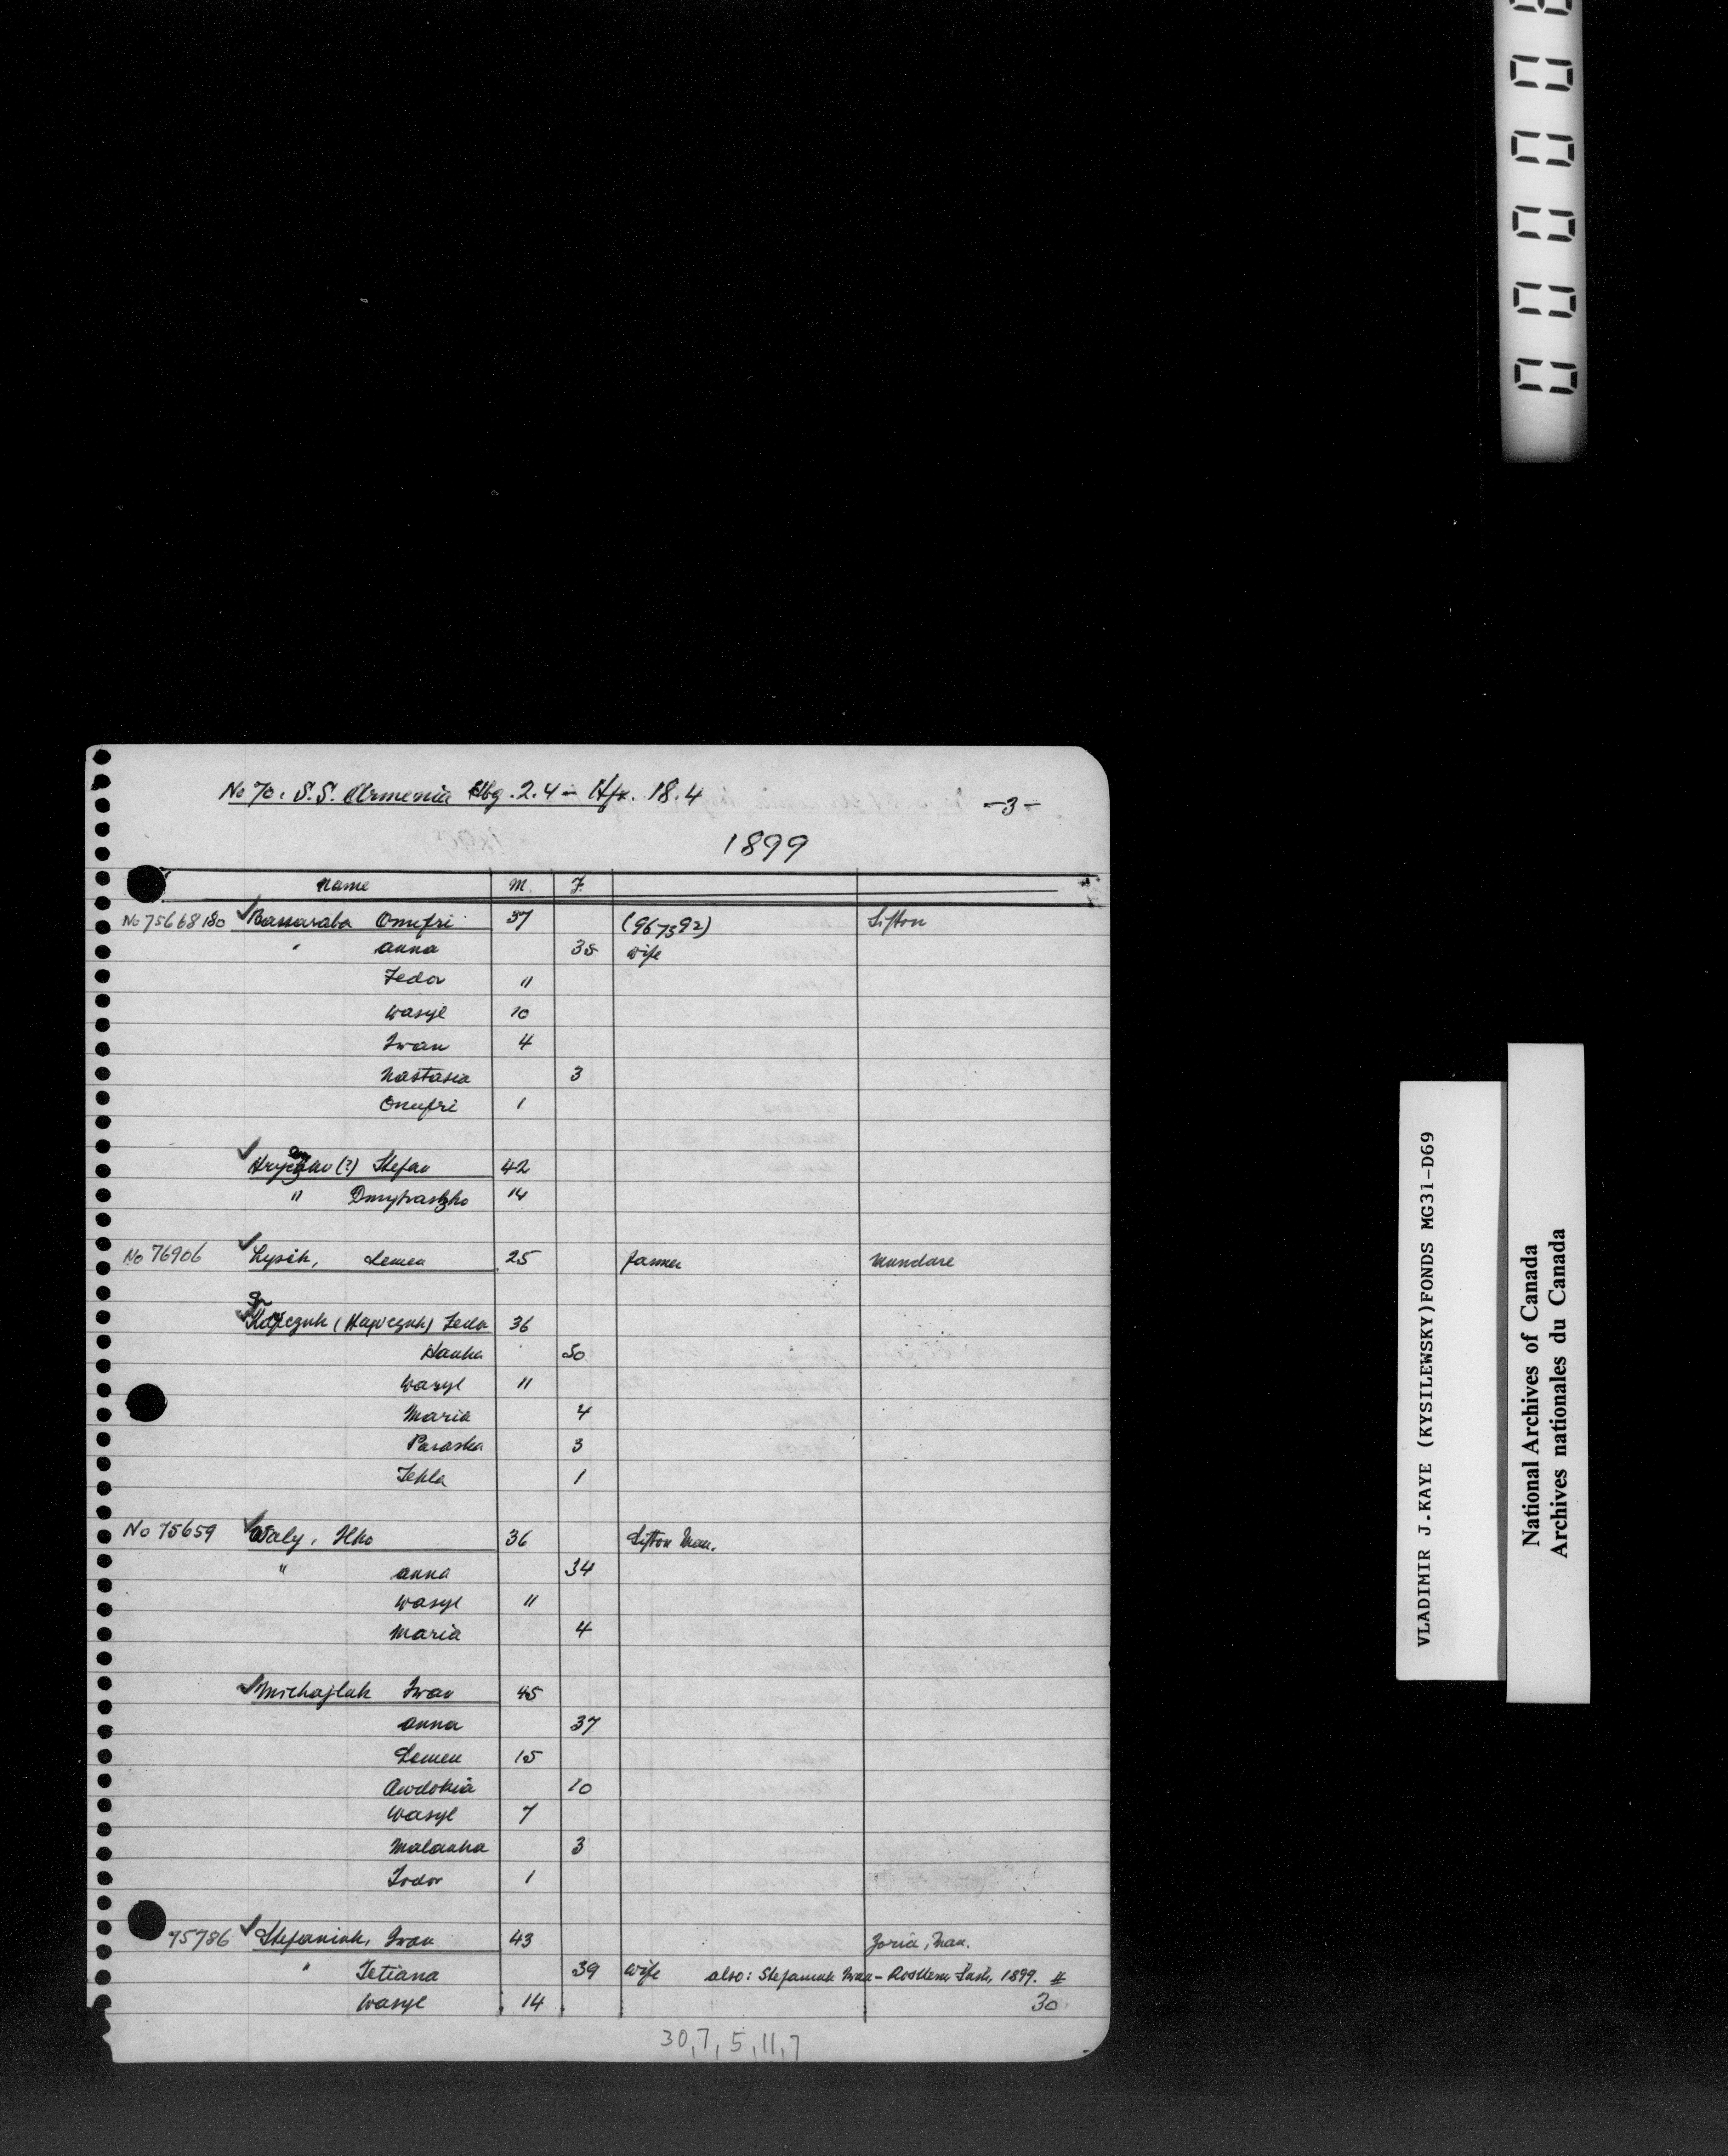 No 70. S.S. Armenia Hbg. 2.4 – Hfx. 18.4
-3-
1899
Name M. F.
No 75668 180 Bassaraba Onufri 37 (967392) Sifton
" Anna 35 wife
Fedor 11
Wasyl 10
Iwan 4
Nastasia 3
Onufri 1
(?) Stefan 42
" 14
No 76906 Lysik, Semen 25 farmer Mundare
Fedor 36
Hanka 50
Wasyl 11
Maria 4
Paraska 3
Tekla 1
No 75659 Waly, Ilko 36 Sifton Man.
" Anna 34
Wasyl 11
Maria 4
Michajluk Iwan 45
Anna 37
Semen 15
Awdokia 10
Wasyl 7
Malanka 3
Todor 1
75786 Stefaniuk, Iwan 43 Zoria, Man.
" Tetiana 39 wife also: Stefaniuk Iwan – Rosthern Sask, 1899. #
Wasyl 14 30
30, 7, 5, 11, 7
VLADIMIR J.KAYE (KYSILEWSKY)FONDS MG31-D69
National Archives of Canada
Archives nationales du Canada